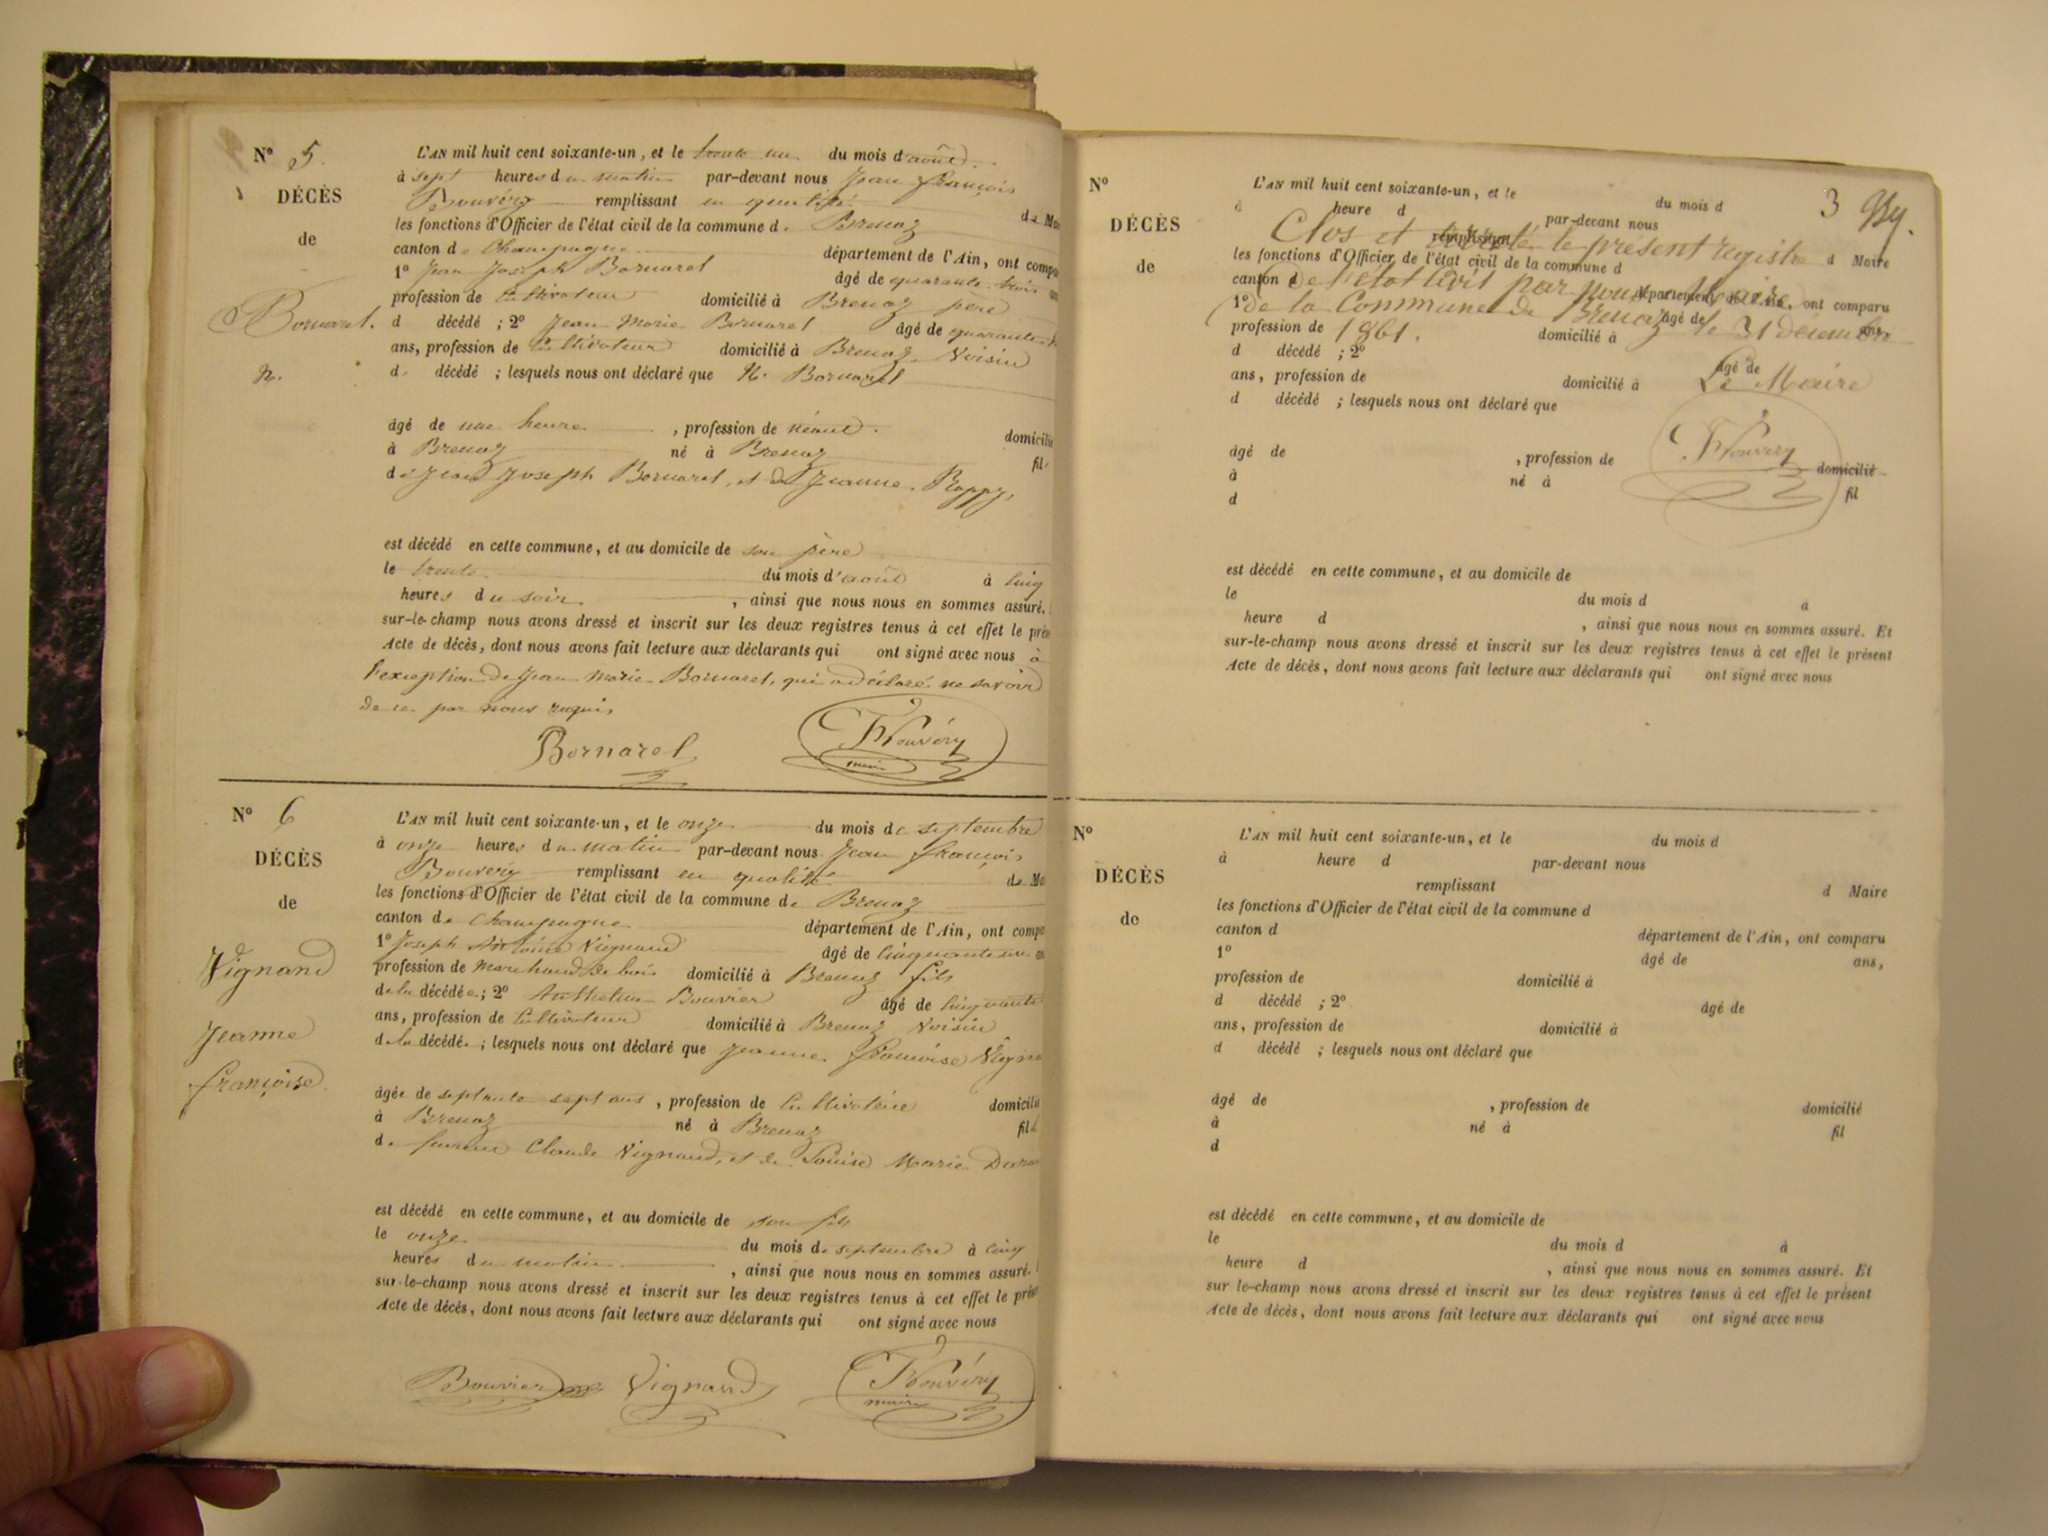 N° 5.
DÉCÈS
de
Bornarel.
n.
L'AN mil huit cent soixante-un, et le trente un du mois d'août
à sept heures du matin par-devant nous Jean françois
Bouvéry remplissant en qualité de Ma
les fonctions d'Officier de l'état civil de la commune de Brenaz
canton de Champagne département de l'Ain, ont compa
1° Jean Joseph Bornarel âgé de quarante trois an
profession de Cultivateur domicilié à Brenaz père
d décédé ; 2° Jean Marie Bornarel âgé de quarante
ans, profession de Cultivateur domicilié à Brenaz Voisin
d. décédé ; lesquels nous ont déclaré que N. Bornarel
âgé de une heure , profession de néant. domicilié
à Brenaz né à Brenaz fils
de Jean Joseph Bornarel, et de Jeanne Rappy,
est décédé en cette commune, et au domicile de son père
le trente du mois d'août à cinq
heures du soir , ainsi que nous nous en sommes assuré.
sur-le-champ nous avons dressé et inscrit sur les deux registres tenus à cet effet le prés
Acte de décès, dont nous avons fait lecture aux déclarants qui ont signé avec nous à
l'exception de Jean Marie Bornarel, qui a déclaré ne savoir
de ce par nous requis
Bornarel Fs Bouvéry
maire
N° 6
DÉCÈS
de
Vignand
Jeanne
françoise.
L'AN mil huit cent soixante-un, et le onze du mois de septembre
à onze heures du matin par-devant nous Jean françois
Bouvéry remplissant en qualité de Ma
les fonctions d'Officier de l'état civil de la commune de Brenaz
canton de Champagne département de l'Ain, ont compa
1° Joseph Antoine Vignand âgé de cinquante un an
profession de Marchand de bois domicilié à Brenaz fils
de la décédée ; 2° Anthelme Bouvier âgé de cinquante
ans, profession de Cultivateur domicilié à Brenaz Voisin
de la décédée ; lesquels nous ont déclaré que Jeanne françoise Vigna
âgée de septante sept ans , profession de Cultivatrice domicilié
à Brenaz né à Brenaz fille
de Claude Vignand, et de Louise Marie
est décédé en cette commune, et au domicile de son fils
le onze du mois de septembre à cinq
heures du matin , ainsi que nous nous en sommes assuré.
sur-le-champ nous avons dressé et inscrit sur les deux registres tenus à cet effet le prés
Acte de décès, dont nous avons fait lecture aux déclarants qui ont signé avec nous
Bouvier Vignand Fs Bouvéry
maire
3
N°
DÉCÈS
de
L'AN mil huit cent soixante-un, et le du mois d
à heure d par-devant nous
Clos et arrêté le présent registre
remplissant d Maire
les fonctions d'Officier de l'état civil de la commune d
de l'état civil par nous Maire
canton d département de l'Ain, ont comparu
de la Commune de Brenaz le 31 décembre
1° âgé de ans,
1861.
profession de domicilié à
d décédé ; 2° âgé de
Le Maire
ans, profession de domicilié à
d décédé ; lesquels nous ont déclaré que
Fs Bouvéry
âgé de , profession de domicilié
à né à fil
d
est décédé en cette commune, et au domicile de
le du mois d à
heure d , ainsi que nous nous en sommes assuré. Et
sur-le-champ nous avons dressé et inscrit sur les deux registres tenus à cet effet le présent
Acte de décès, dont nous avons fait lecture aux déclarants qui ont signé avec nous
N°
DÉCÈS
de
L'AN mil huit cent soixante-un, et le du mois d
à heure d par-devant nous
remplissant d Maire
les fonctions d'Officier de l'état civil de la commune d
canton d département de l'Ain, ont comparu
1° âgé de ans,
profession de domicilié à
d décédé ; 2° âgé de
ans, profession de domicilié à
d décédé ; lesquels nous ont déclaré que
âgé de , profession de domicilié
à né à fil
d
est décédé en cette commune, et au domicile de
le du mois d à
heure d , ainsi que nous nous en sommes assuré. Et
sur le-champ nous avons dressé et inscrit sur les deux registres tenus à cet effet le présent
Acte de décès, dont nous avons fait lecture aux déclarants qui ont signé avec nous